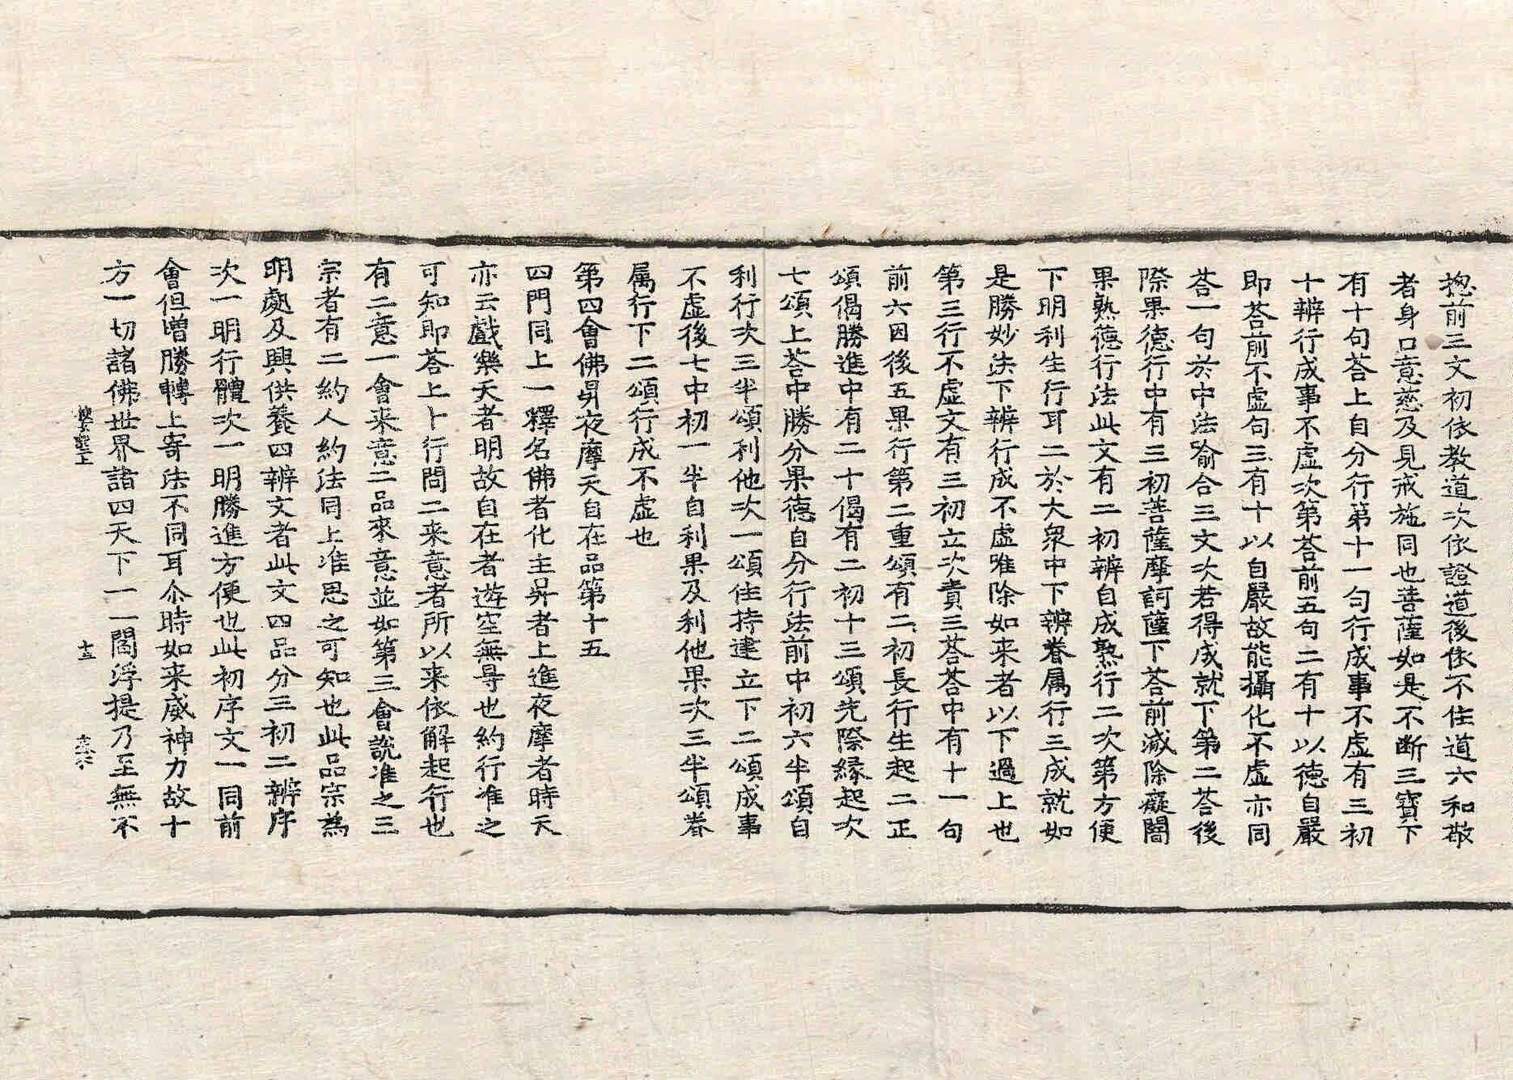 揔前三文初依教道次依證道後依不住道六和敬
者身口意慈及見戒施同也菩薩如是不断三寶下
有十句荅上自分行第十一句行成事不虚有三初
十辨行成事不虚次第荅前五句二有十以德自嚴
即荅前不虚句三有十以自嚴故能攝化不虚亦同
荅一句於中法喻合三文次若得成就下第二荅後
際果德行中有三初菩薩摩訶薩下荅前滅除癡闇
果熟德行法此文有二初辨自成熟行二次第方便
下明利生行耳二於大衆中下辨眷属行三成就如
是勝妙法下辨行成不虚唯除如来者以下過上也
第三行不虚文有三初立次責三荅荅中有十一句
前六因後五果行第二重頌有二初長行生起二正
頌偈勝進中有二十偈有二初十三頌先際緣起次
七頌上荅中勝分果德自分行法前中初六半頌自
利行次三半頌利他次一頌住持建立下二頌成事
不虚後七中初一半自利果及利他果次三半頌眷
属行下二頌行成不虚也
第四會佛昇夜摩天自在品第十五
四門同上一釋名佛者化主昇者上進夜摩者時天
亦云戲樂天者明故自在者遊空無㝵也約行准之
可知即荅上十行問二来意者所以来依解起行也
有二意一會来意二品來意並如第三會說准之三
宗者有二約人約法同上准思之可知也此品宗為
明處及興供養四辨文者此文四品分三初二辨序
次一明行體次一明勝進方便也此初序文一同前
會但增勝轉上寄法不同耳尒時如来威神力故十
方一切諸佛世界諸四天下一一閻浮提乃至無不
十五